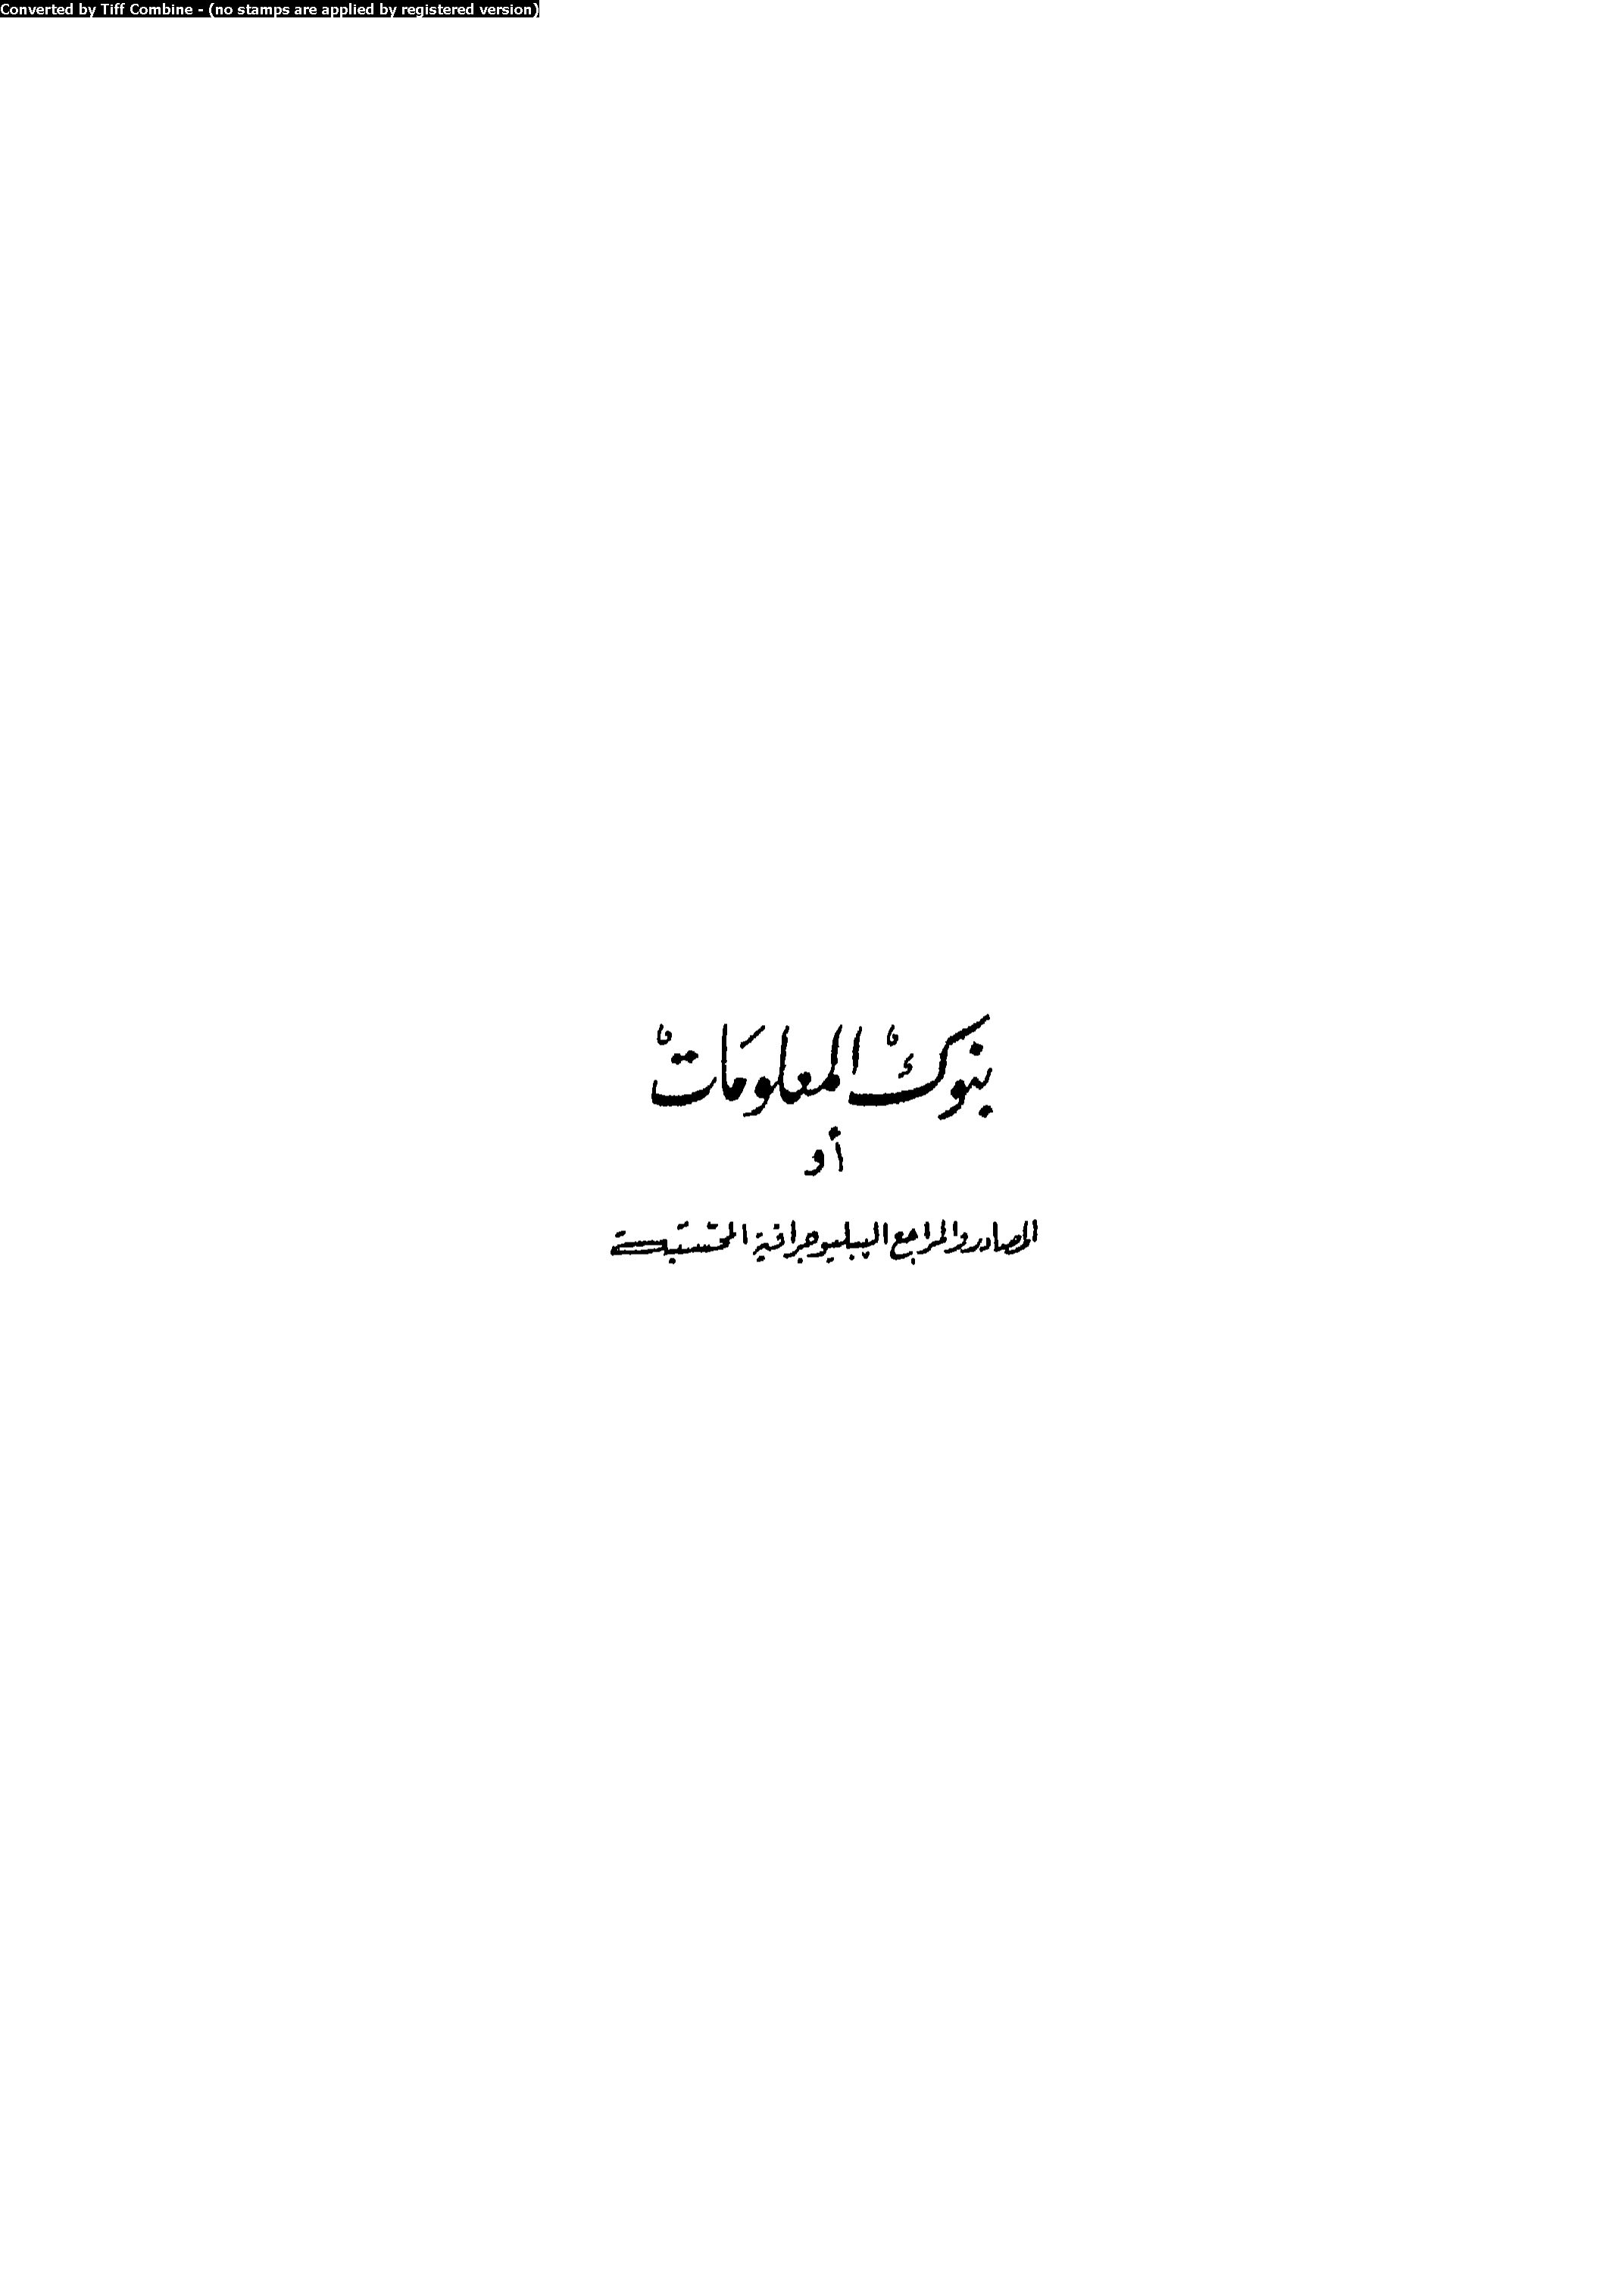 Converted by Tiff Combine - (no stamps are applied by registered version)
بنوك المعلومَات
أو
المصادر والمراجع الببليوجرافية المحتسبة